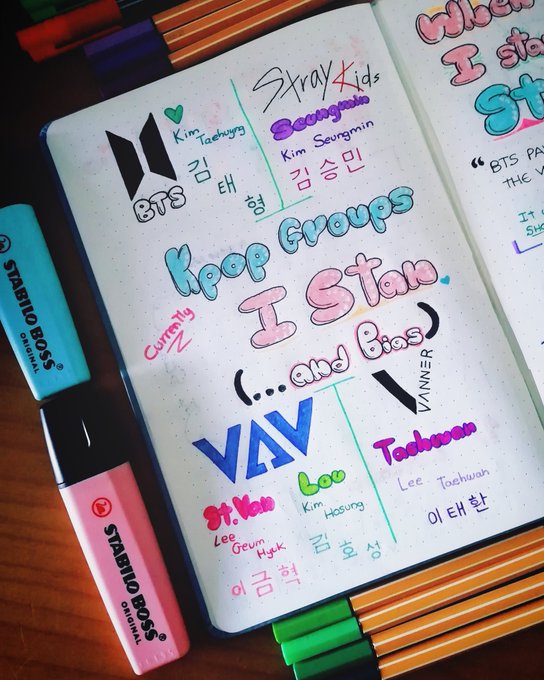 BTS
Kim
Taehuyng
김
태
형
Stray Kids
Seungmin
Kim Seungmin
김승민
Kpop Groups
I Stan
Currently
(...and Bias)
VAV
St.Van
Lee
Geum
Hyuk
이금혁
Lou
Kim
Hosung
김호성
VANNER
Taehwan
Lee Taehwan
이태환
When
I sta
St
" BTS PA
THE V
STABILO BOSS
ORIGINAL
STABILO BOSS
ORIGINAL